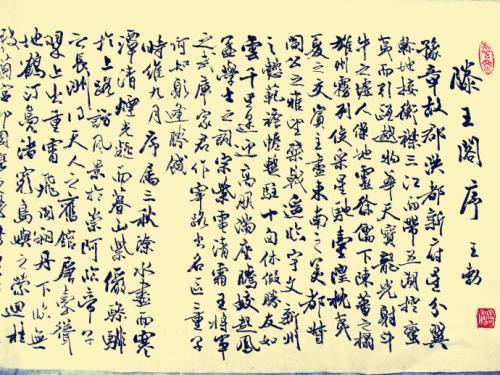 滕王閣序 王勃
豫章故郡洪都新府星分翼
軫地接衡襟三江而帶五湖控蠻
荆而引甌越物華天寶龍光射斗
牛之墟人傑地靈徐孺下陳蕃之榻
雄州霧列俊采星馳臺隍枕夷
夏之交賓主盡東南之美都督
閻公之雅望棨戟遥臨宇文新州
之懿範襜帷暫駐十旬休假勝友如
雲千里逢迎高朋滿座騰蛟起鳳
孟學士之詞宗紫電清霜王將軍
之武庫家君作宰路出名區童子
何知躬逢勝餞
時維九月序屬三秋潦水盡而寒
潭清煙光凝而暮山紫儼驂騑
於上路訪風景於崇阿臨帝子
之長洲得天人之舊館層臺聳
翠上出重霄飛閣翔丹下臨無
地鶴汀鳧渚窮島嶼之縈迴桂
殿蘭宫即岡巒